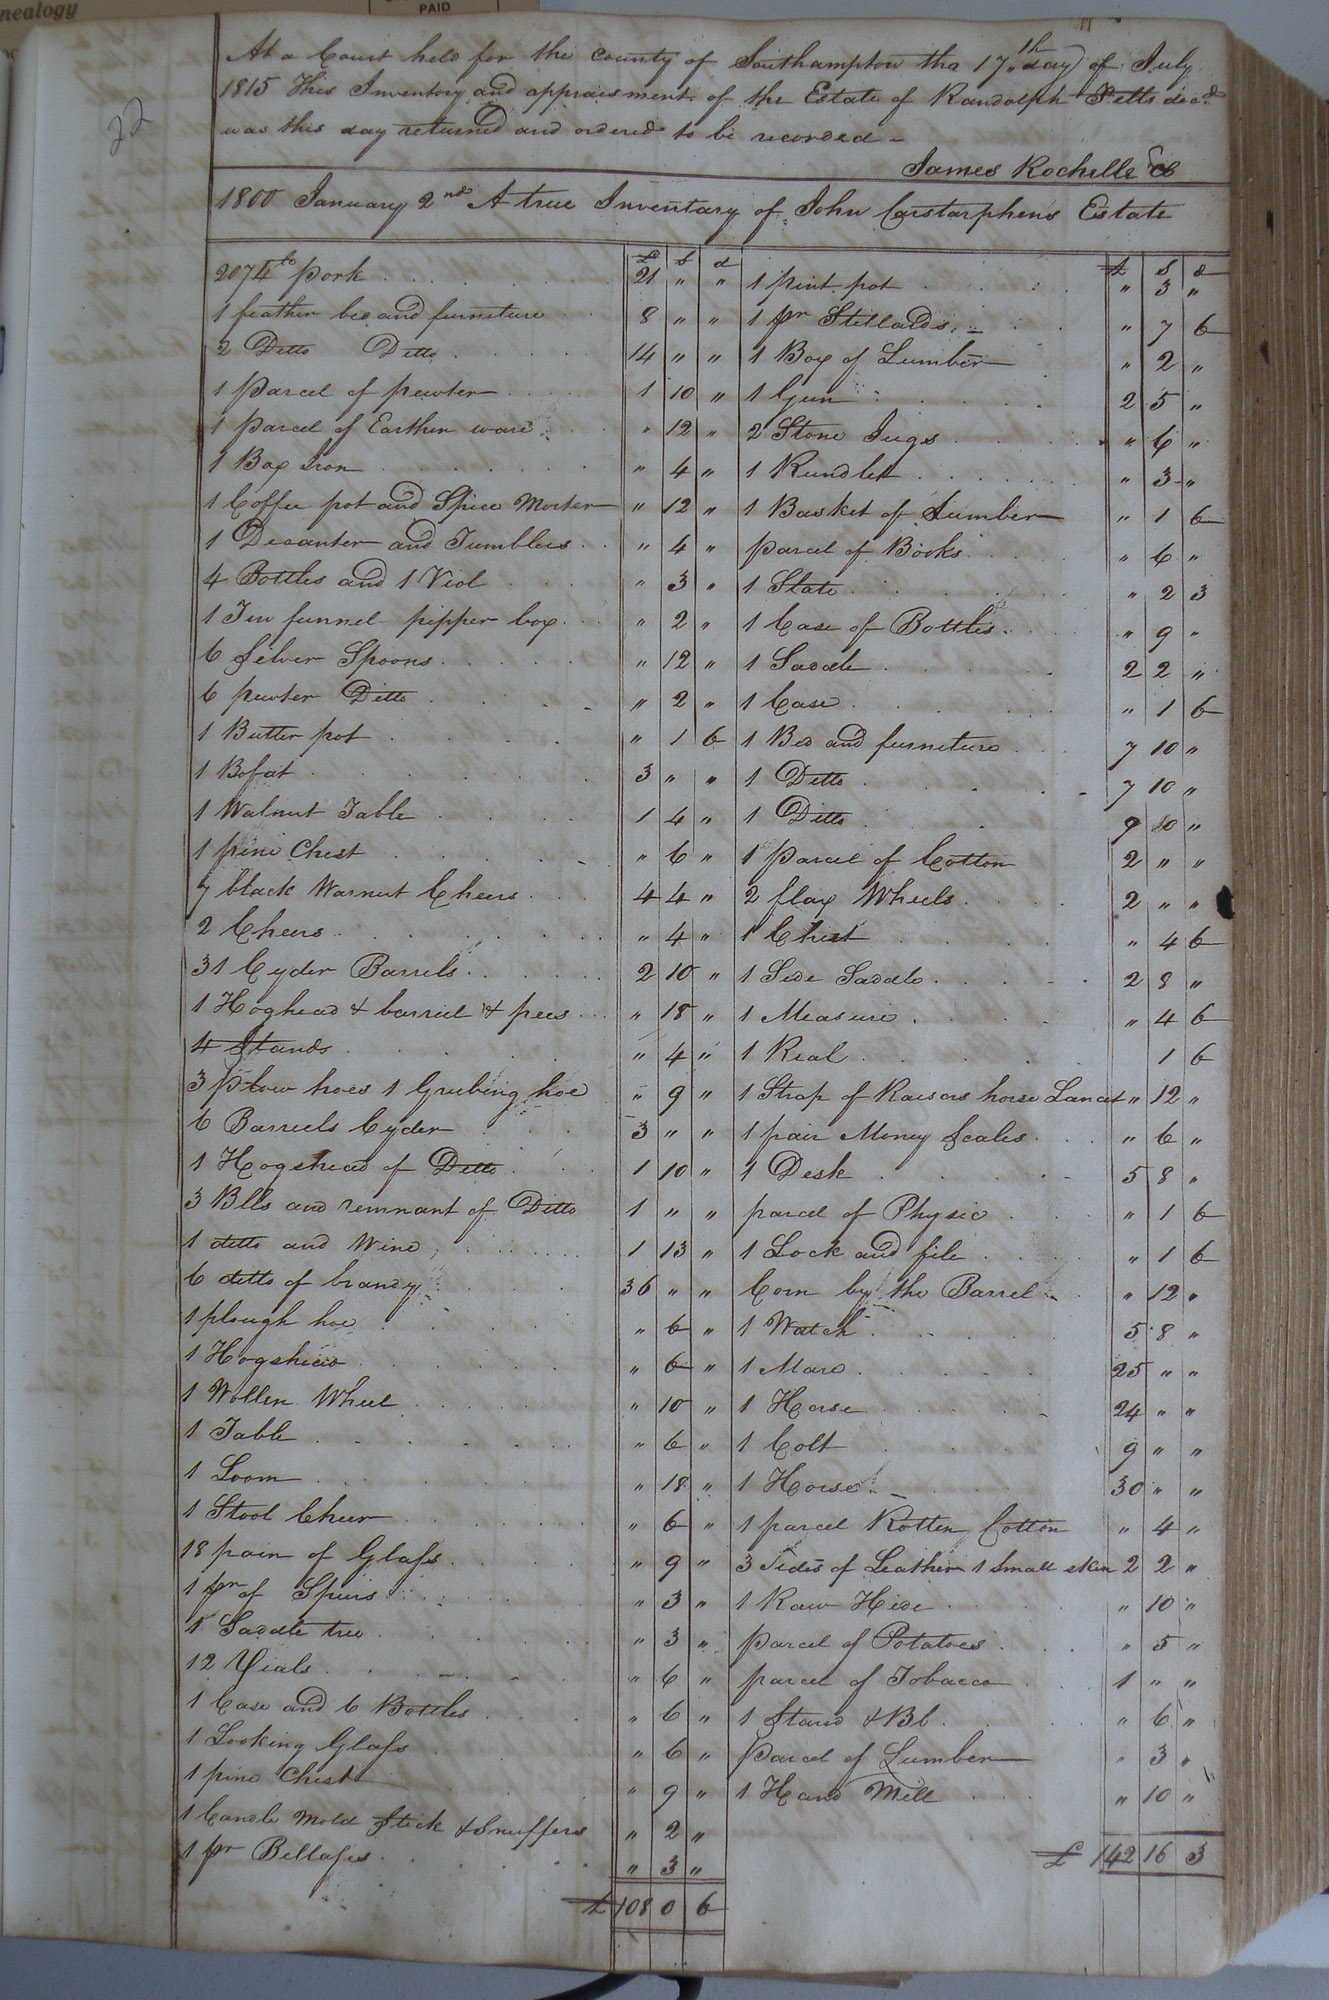 nealogy
PAID
22
At a Court held for the county of Southampton the 17th day of July
1815 This Inventory and appraisment of the Estate of Randolph Pitts decd
was this day returned and ordered to be recorded –
James Rochelle
1800 January 2nd A true Inventory of John Carstarphens Estate
£ s d
2074 lb pork 21 " "
1 feather bed and furniture 8 " "
2 Ditto Ditto 14 " "
1 Parcel of pewter 1 10 "
1 Parcel of Earthen ware " 12 "
1 Box Iron " 4 "
1 Coffee pot and Spice Morter " 12 "
1 Decanter and Tumblers " 4 "
4 Bottles and 1 Viol " 3 "
1 Tin funnel pipper box " 2 "
6 Silver Spoons " 12 "
6 pewter Ditto " 2 "
1 Butter pot " 1 6
1 Bofat 3 " "
1 Walnut Table 1 4 "
1 pine Chest " 6 "
7 black Warnut Cheers 4 4 "
2 Cheers " 4 "
31 Cyder Barrels 2 10 "
1 Hoghead & barriel & pees " 18 "
4 Stands " 4 "
3 Plow hoes 1 Grubing hoe " 9 "
6 Barriels Cyder 3 " "
1 Hogshead of Ditto 1 10 "
3 Blls and remnant of Ditto 1 " "
1 ditto and Wine 1 13 "
6 ditto of brandy 36 " "
1 plough hoe " 6 "
1 Hogshead " 6 "
1 Wollen Wheel " 10 "
1 Table " 6 "
1 Loom " 18 "
1 Stool Cheer " 6 "
18 pain of Glass " 9 "
1 pr of Spurs " 3 "
1 Saddle tree " 3 "
12 Vials " 6 "
1 Case and 6 Bottles " 6 "
1 Looking Glass " 6 "
1 pine Chest " 9 "
1 Candle Mold Stick & Snuffers " 2 "
1 pr Bellases " 3 "
£ 108 0 6
£ s d
1 pint pot " 3 "
1 pr Stillads " 7 6
1 Box of Lumber " 2 "
1 Gun 2 5 "
2 Stone Jugs " 6 "
1 Rundlet " 3 "
1 Basket of Lumber " 1 6
parcel of Books " 6 "
1 Slate " 2 3
1 Case of Bottles " 9 "
1 Saddle 2 2 "
1 Case " 1 6
1 Bed and furniture 7 10 "
1 Ditto 7 10 "
1 Ditto 9 10 "
1 Parcel of Cotton 2 " "
2 flax Wheels 2 " "
1 Chest " 4 6
1 Side Saddle 2 8 "
1 Measure " 4 6
1 Real 1 6
1 Strap of Raisors horse Lancet " 12 "
1 pair Money Scales " 6 "
1 Desk 5 8 "
parcel of Physic " 1 6
1 Lock and file " 1 6
Corn by the Barrel " 12 "
1 Watch 5 8 "
1 Mare 25 " "
1 Horse 24 " "
1 Colt 9 " "
1 Horse 30 " "
1 parcel Rotten Cotton " 4 "
3 Sides of Leather 1 Small skin 2 2 "
1 Raw Hide " 10 "
parcel of Potatoes " 5 "
parcel of Tobacco 1 " "
1 Stand & Bb " 6 "
Parcel of Lumber " 3 "
1 Hand Mill " 10 "
£ 142 16 3